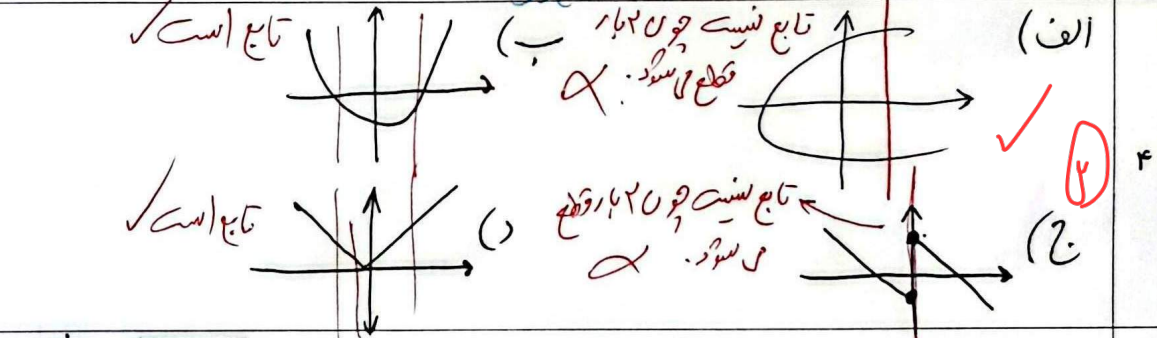 ۴
۲
الف)
تابع نیست چون ۲ بار
قطع می شود.
ب)
تابع است
ج)
تابع نیست چون ۲ بار قطع
می شود.
د)
تابع است